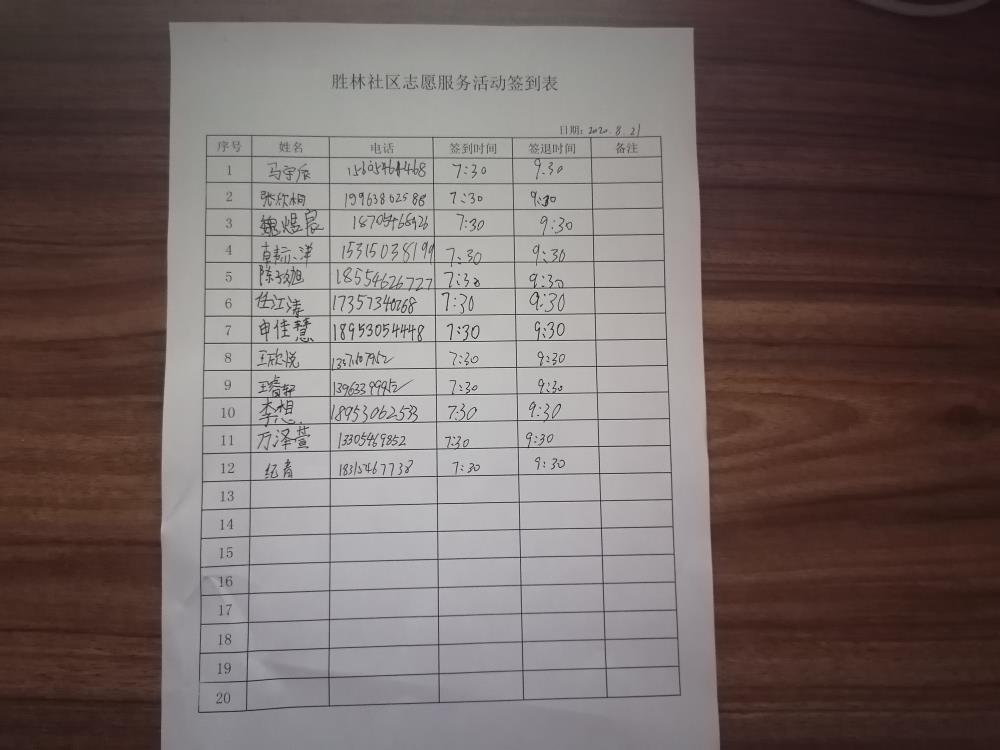 胜林社区志愿服务活动签到表
日期: 2020. 8. 21
序号 姓名 电话 签到时间 签退时间 备注
1 马宇辰 7:30 9:30
2 张欣桐 19963802588 7:30 9:30
3 魏煜宸 18705468926 7:30 9:30
4 15315038199 7:30 9:30
5 18554626727 7:30 9:30
6 任江涛 17357340268 7:30 9:30
7 申佳慧 18953054448 7:30 9:30
8 王欣悦 7:30 9:30
9 王睿轩 7:30 9:30
10 李想 18953062533 7:30 9:30
11 万泽萱 13305469852 7:30 9:30
12 纪青 18315467738 7:30 9:30
13
14
15
16
17
18
19
20